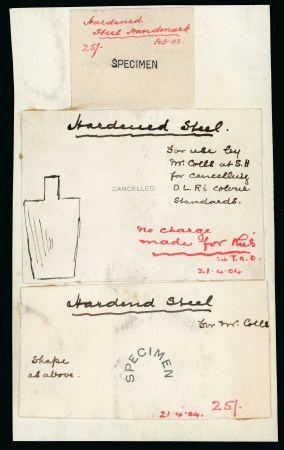 Hardened
Steel Handmark
25/- Feb 03.
SPECIMEN
Hardened Steel.
For use by
Mr. Colls at S.H
for cancelling
D.L.R's colour
Standards.
CANCELLED.
No charge
made for this
T.A.D.
21.4.04
Hardend Steel
For Mr. Colls
Shape
as above.
SPECIMEN
21.4.04.
25/-